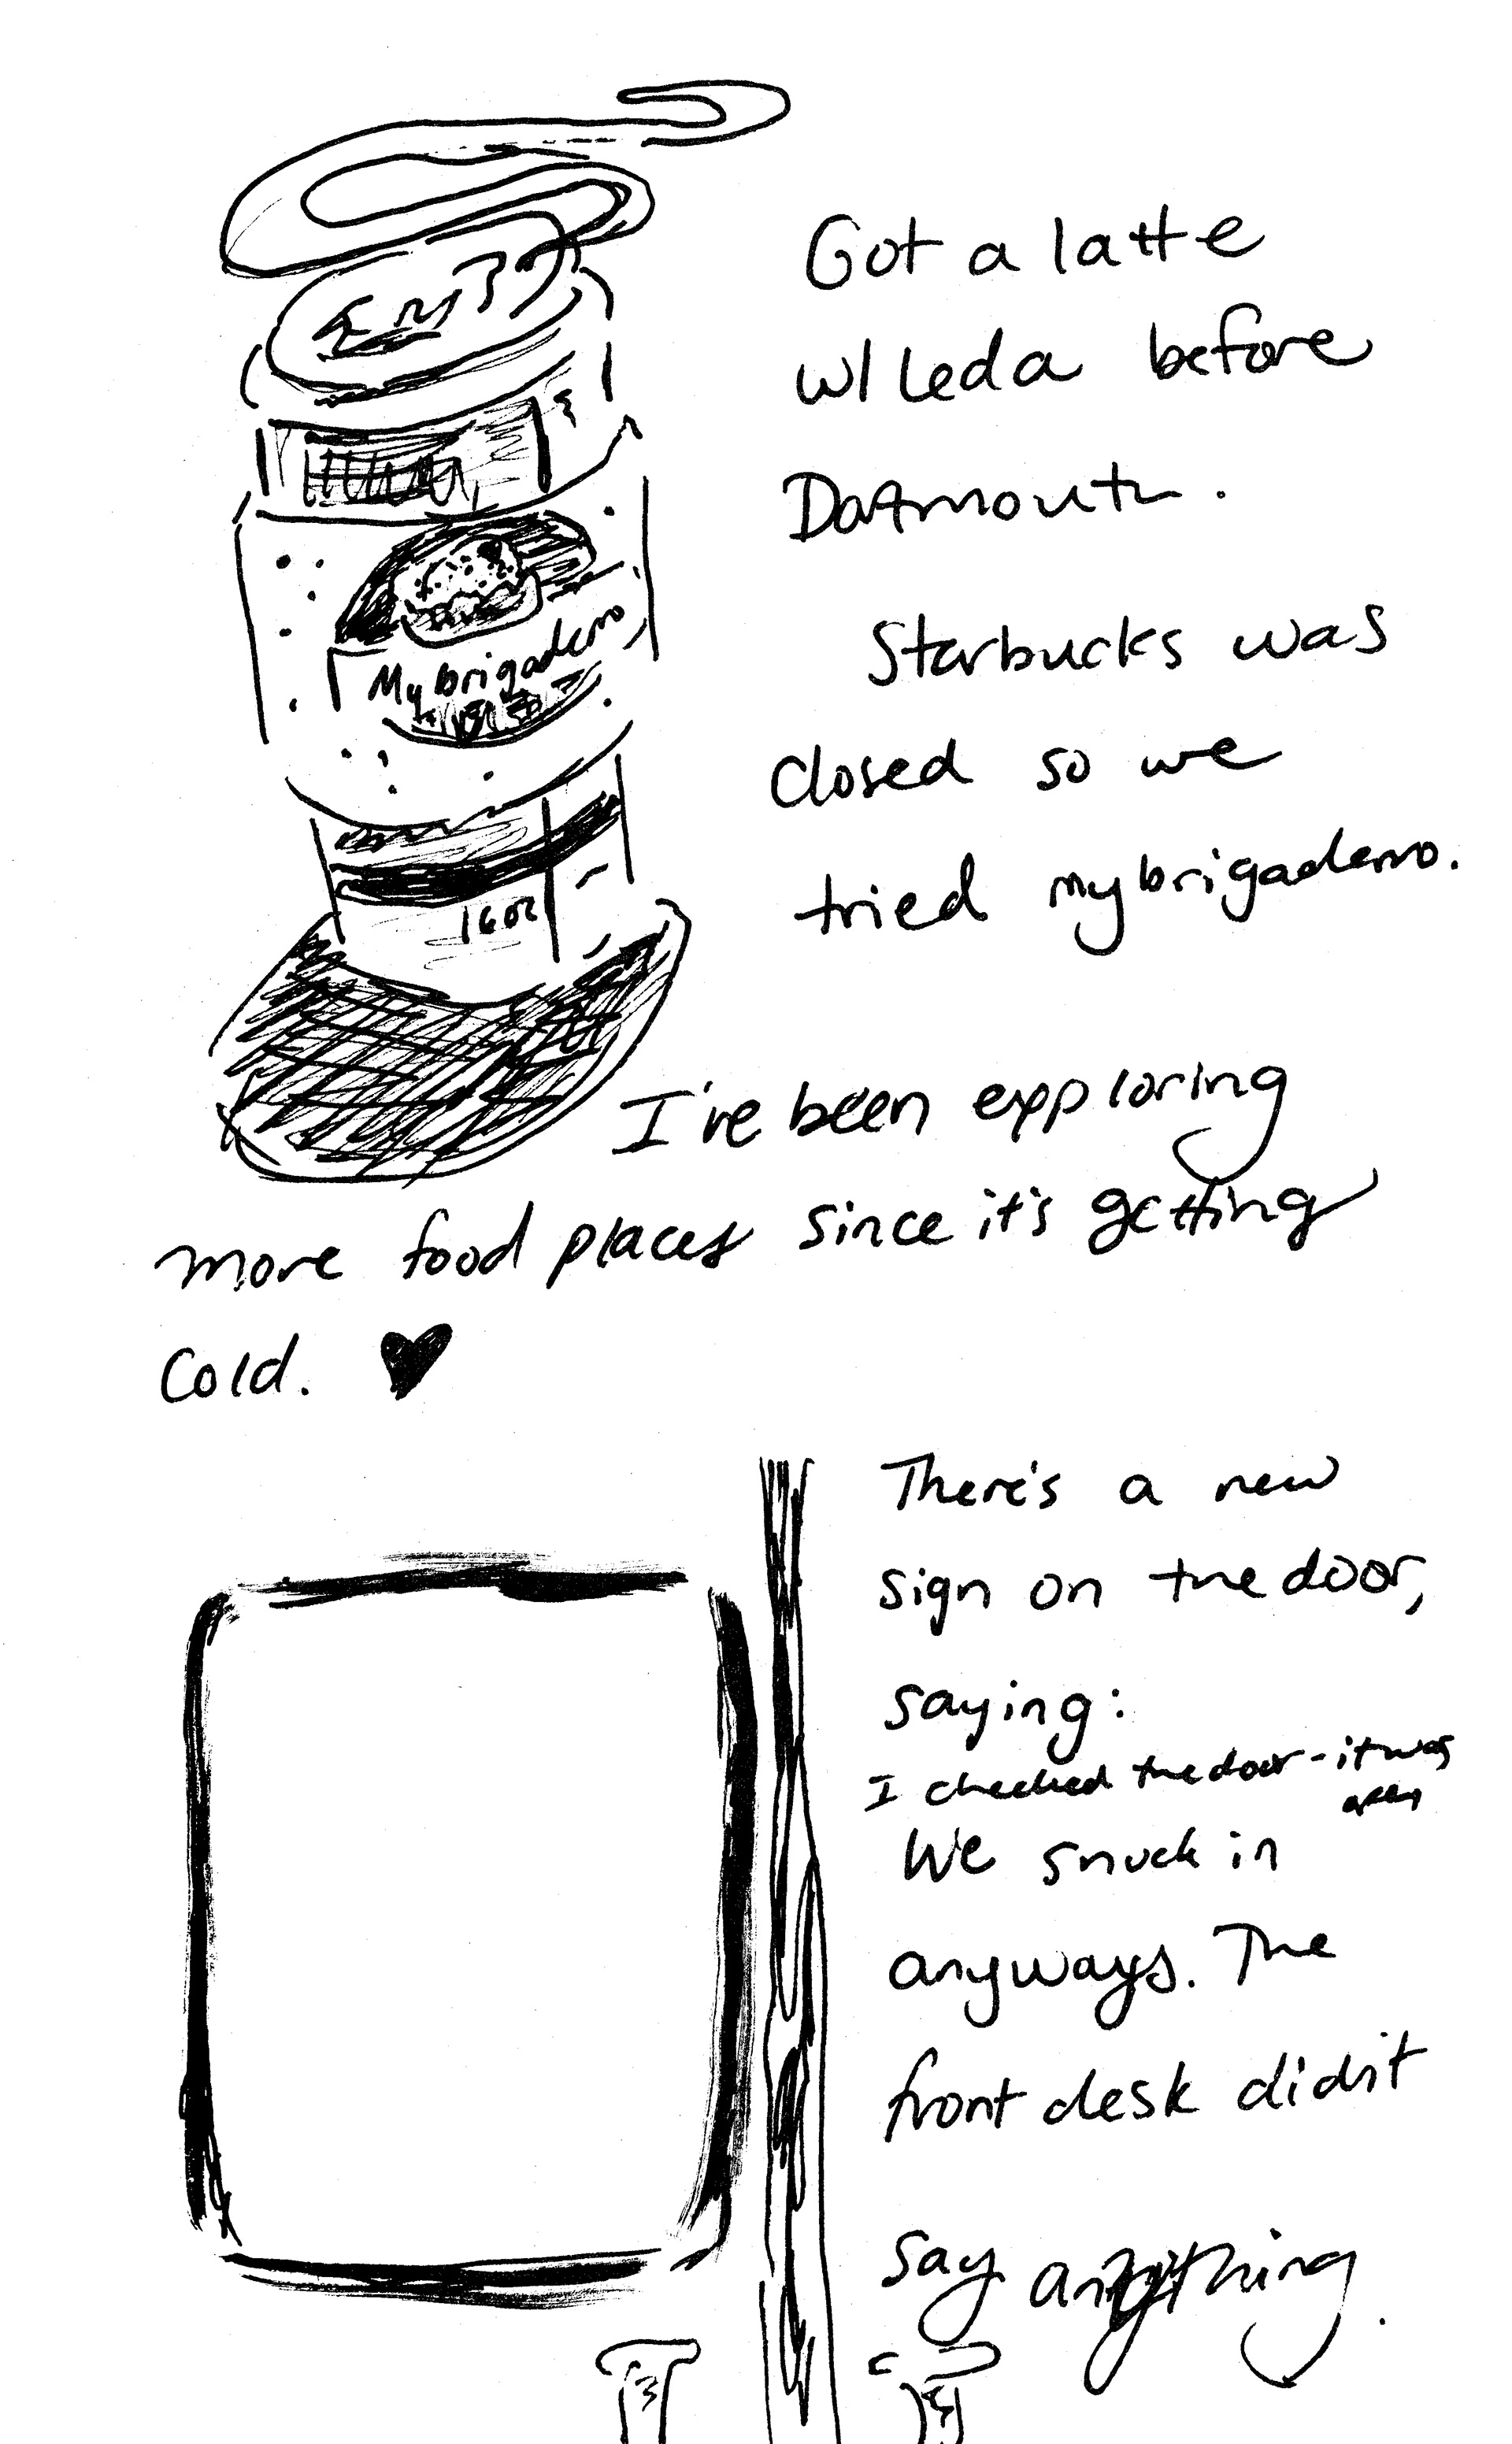 Got a latte
w/ Leda before
Datmouth.
My brigadeiro
16oz
Starbucks was
closed so we
tried my brigadeiro.
I've been exploring
more food places since it's getting
cold. ♥
There's a new
sign on the door,
saying:
I checked the door - it was
open
We snuck in
anyways. The
front desk didn't
say anything.